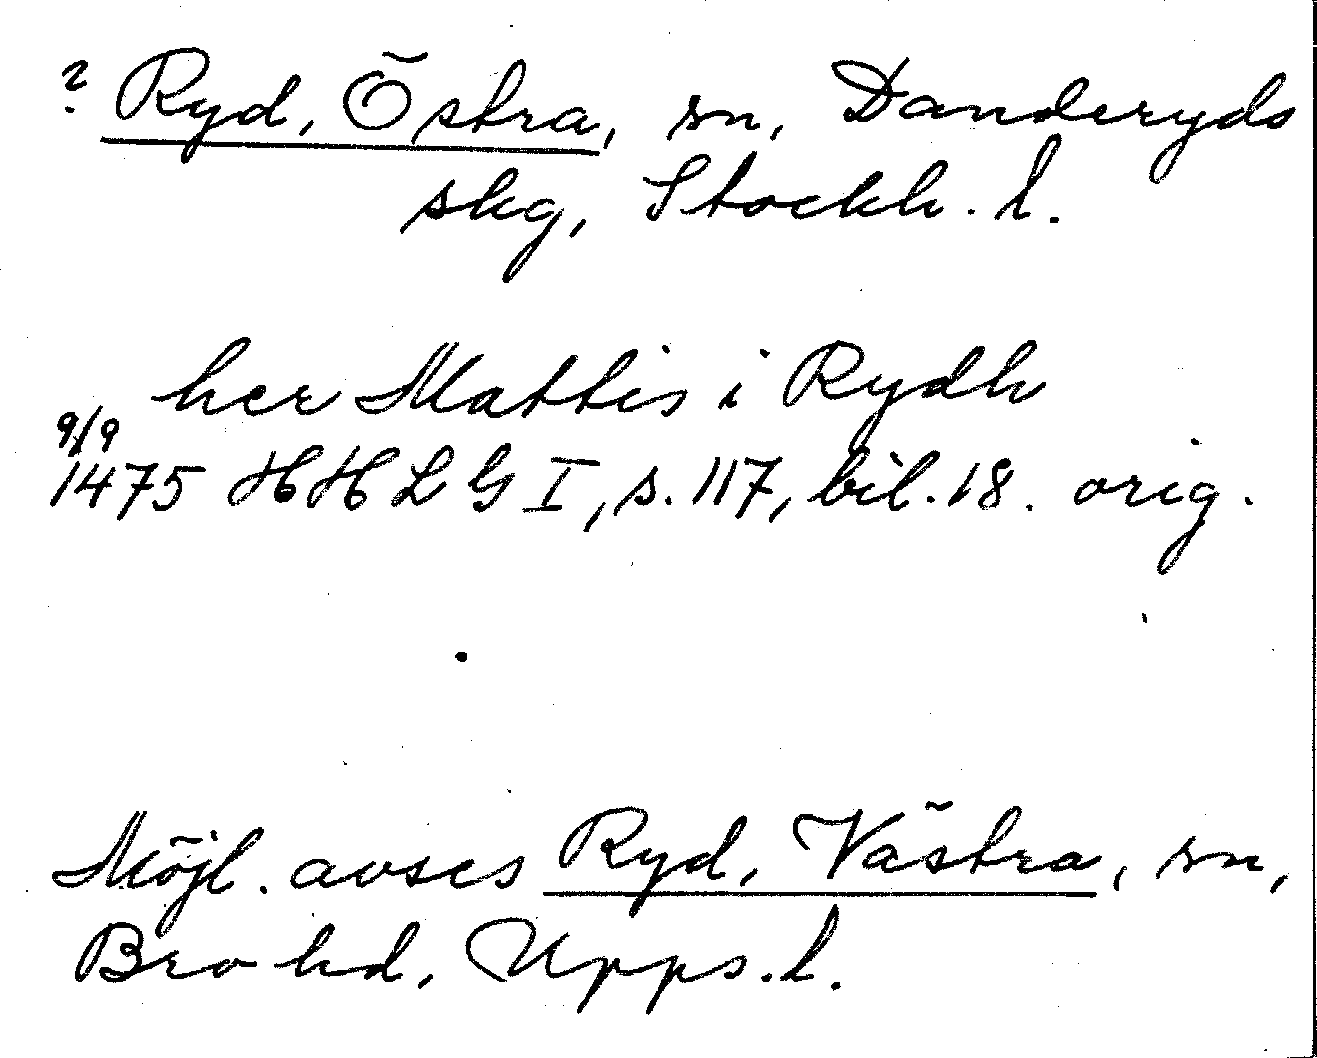 ? Ryd, Östra, sn, Danderyds
skg, Stockh. l.
her Mattis i Rydh
9/9
1475 HHLG I, s. 117, bil. 18. orig.
Möjl. avses Ryd, Västra, sn,
Bro hd, Upps. l.